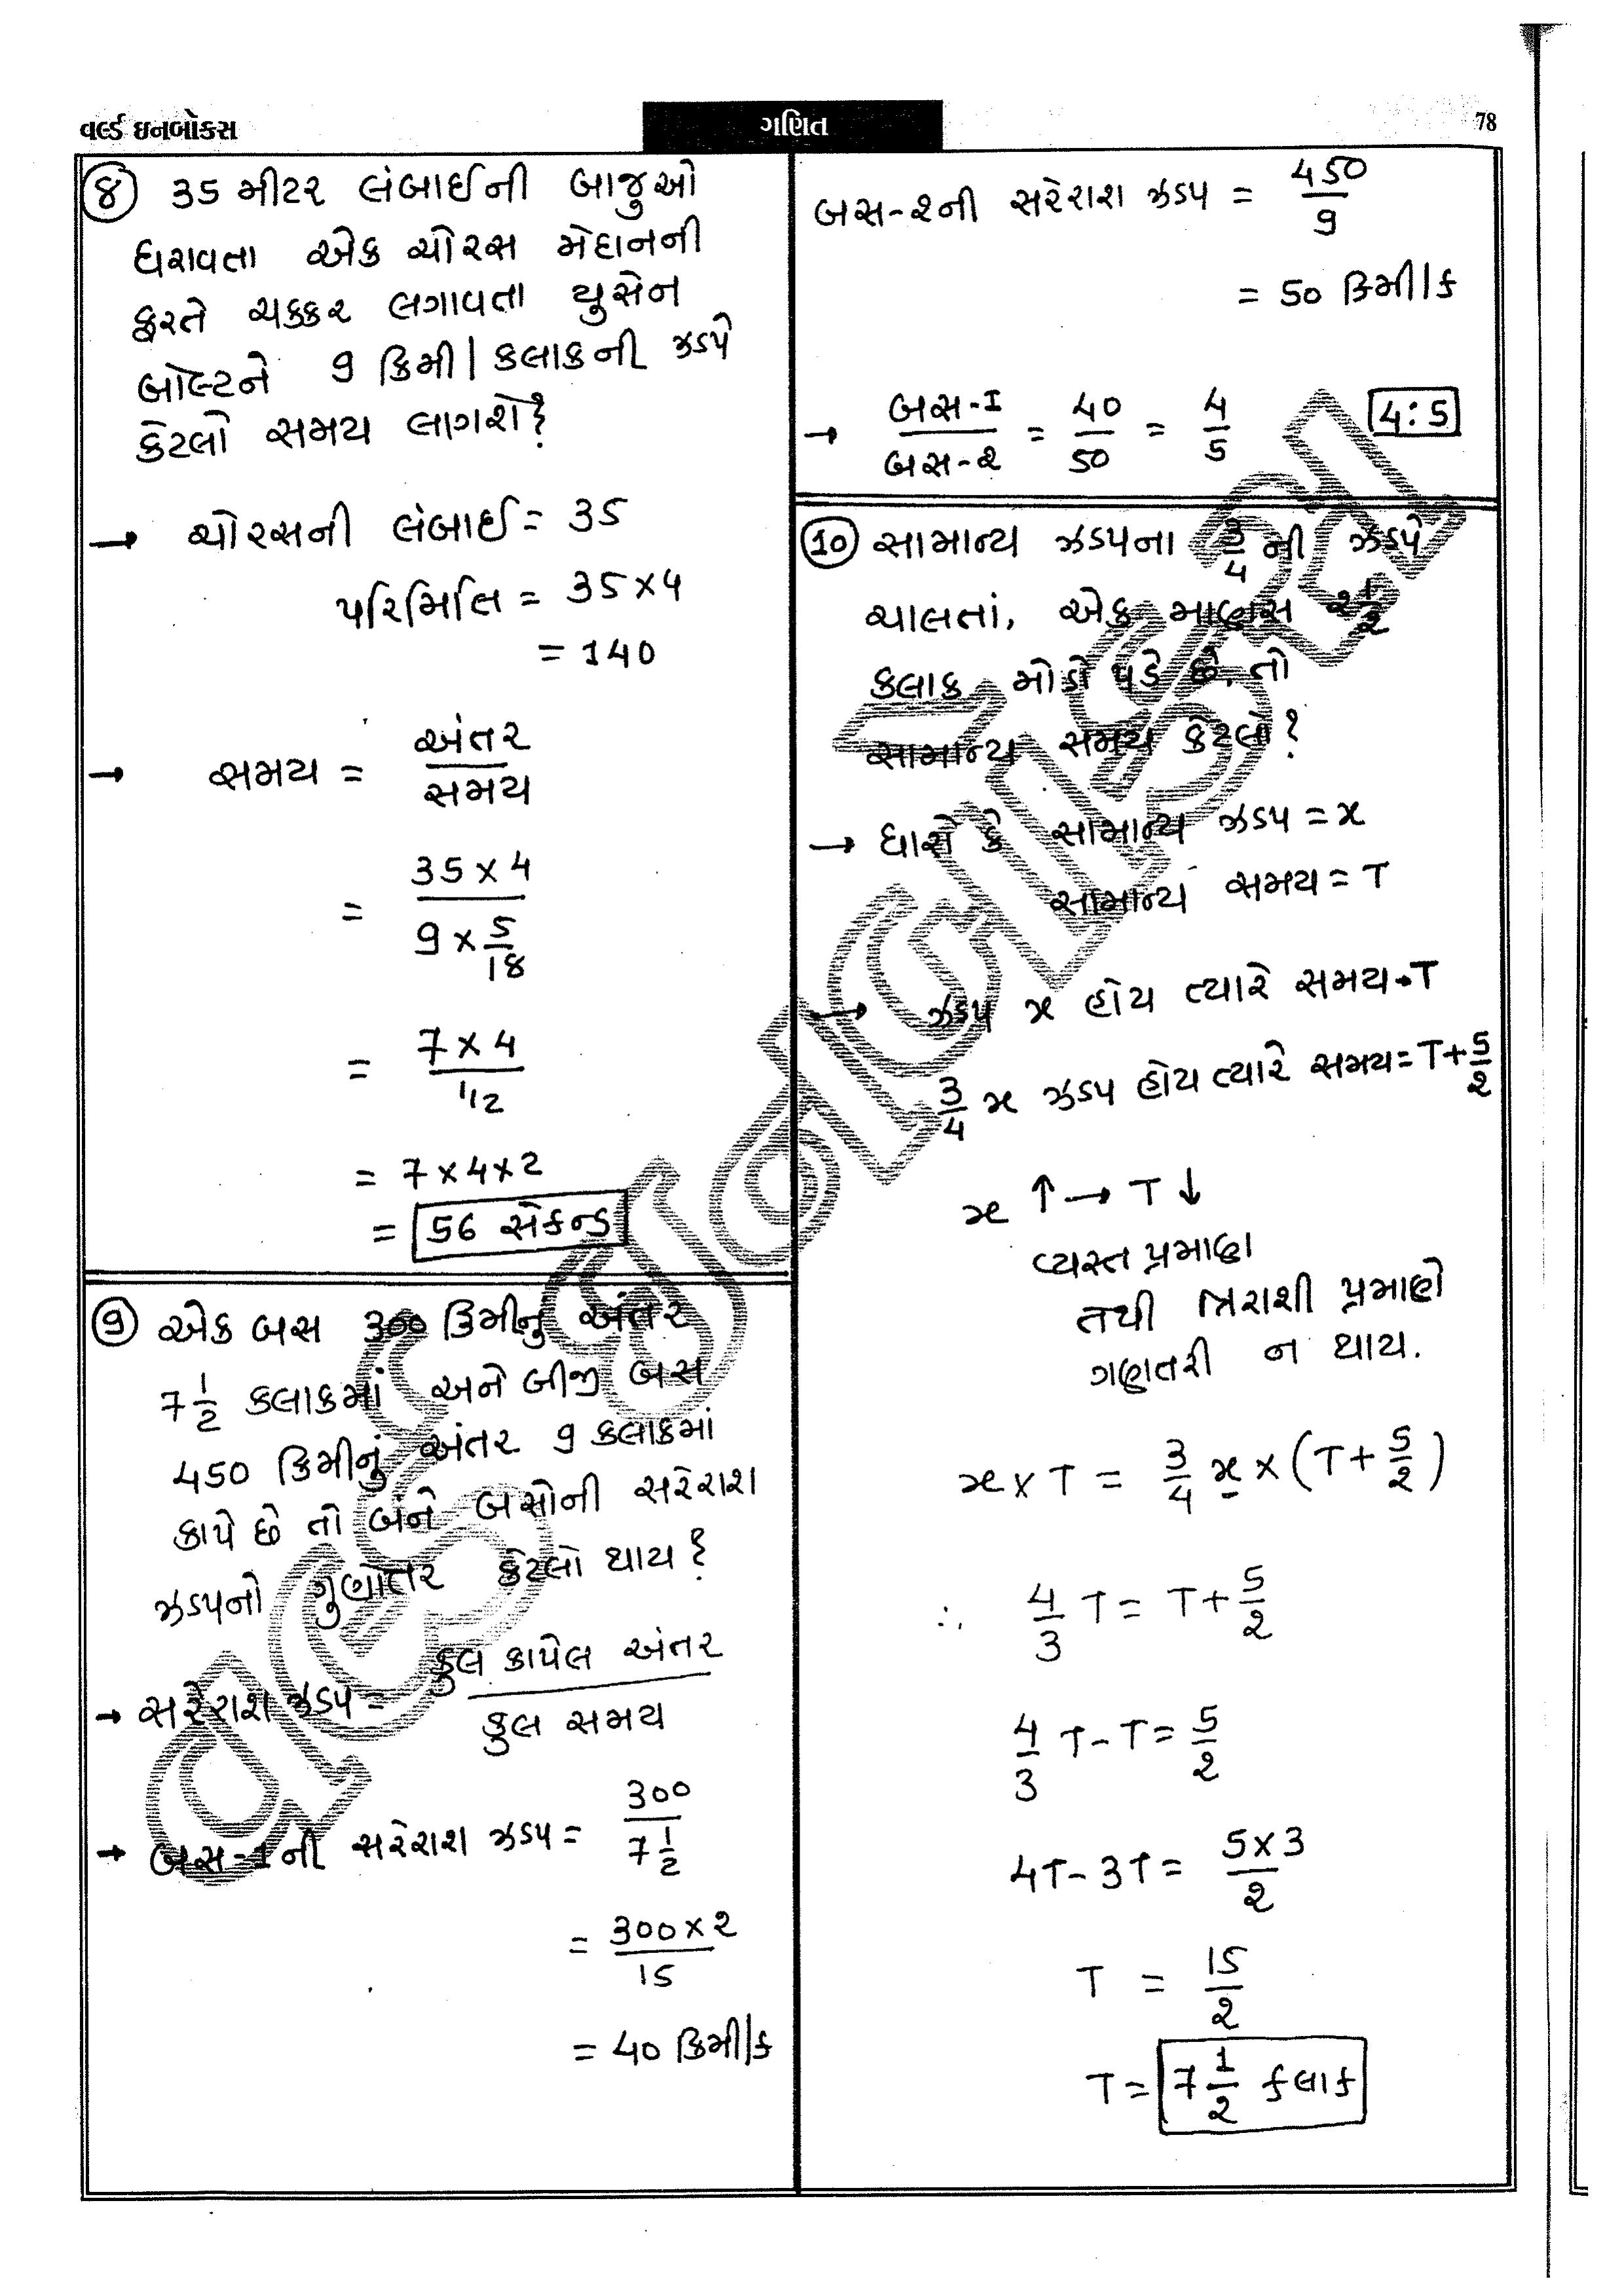 વર્લ્ડ ઇનબોકસ
ગણિત
78
8 35 મીટર લંબાઈની બાજુઓ
ધરાવતા એક ચોરસ મેદાનની
ફરતે ચક્કર લગાવતા યુસેન
બોલ્ટને 9 કિમી/કલાકની ઝડપે
કેટલો સમય લાગશે?
→ ચોરસની લંબાઈ = 35
પરિમિતિ = 35 × 4
= 140
→ સમય = અંતર / સમય
= 35 × 4 / 9 × 5/18
= 7 × 4 / 1/2
= 7 × 4 × 2
= 56 સેકન્ડ
9 એક બસ 300 કિમીનુ અંતર
7 1/2 કલાકમાં અને બીજી બસ
450 કિમીનું અંતર 9 કલાકમાં
કાપે છે તો બંને બસોની સરેરાશ
ઝડપનો ગુણોત્તર કેટલો થાય?
→ સરેરાશ ઝડપ = કુલ કાપેલ અંતર / કુલ સમય
→ બસ-1ની સરેરાશ ઝડપ = 300 / 7 1/2
= 300 × 2 / 15
= 40 કિમી/ક
બસ-2ની સરેરાશ ઝડપ = 450 / 9
= 50 કિમી/ક
→ બસ-1 / બસ-2 = 40 / 50 = 4 / 5 4:5
10 સામાન્ય ઝડપના 3/4 ની ઝડપે
ચાલતાં, એક માણસ 2 1/2
કલાક મોડો પડે છે, તો
સામાન્ય સમય કેટલો?
→ ધારો કે સામાન્ય ઝડપ = x
સામાન્ય સમય = T
→ ઝડપ x હોય ત્યારે સમય = T
3/4 x ઝડપ હોય ત્યારે સમય = T + 5/2
x ↑ → T ↓
વ્યસ્ત પ્રમાણ
તથી ત્રિરાશી પ્રમાણે
ગણતરી ન થાય.
x × T = 3/4 x × (T + 5/2)
∴ 4/3 T = T + 5/2
4/3 T - T = 5/2
4T - 3T = 5 × 3 / 2
T = 15 / 2
T = 7 1/2 કલાક